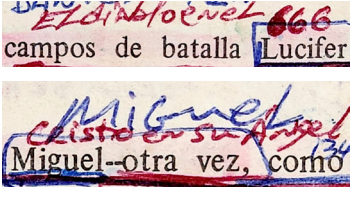 El diablo en el 666
campos de batalla Lucifer
Miguel
Cristo en su Angel
Miguel--otra vez, como